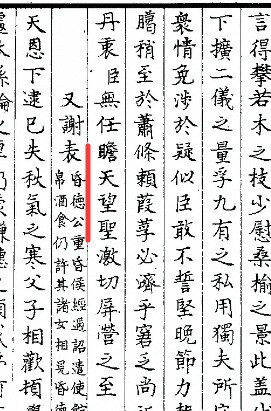 言得攀若木之枝少慰桑榆之景此蓋
下擴二儀之量孚九有之私用獨夫所
衆情免涉於疑似臣敢不誓堅晚節力
臈稍至於蕭條賴葭莩必濟乎窘乏尚
丹衷臣無任瞻天望聖激切屏營之至
又謝表
昏德公重昏候經過詔遣使館
帛酒食仍許其諸女相見昏德
天恩下逮已失秋氣之寒父子相歡頓